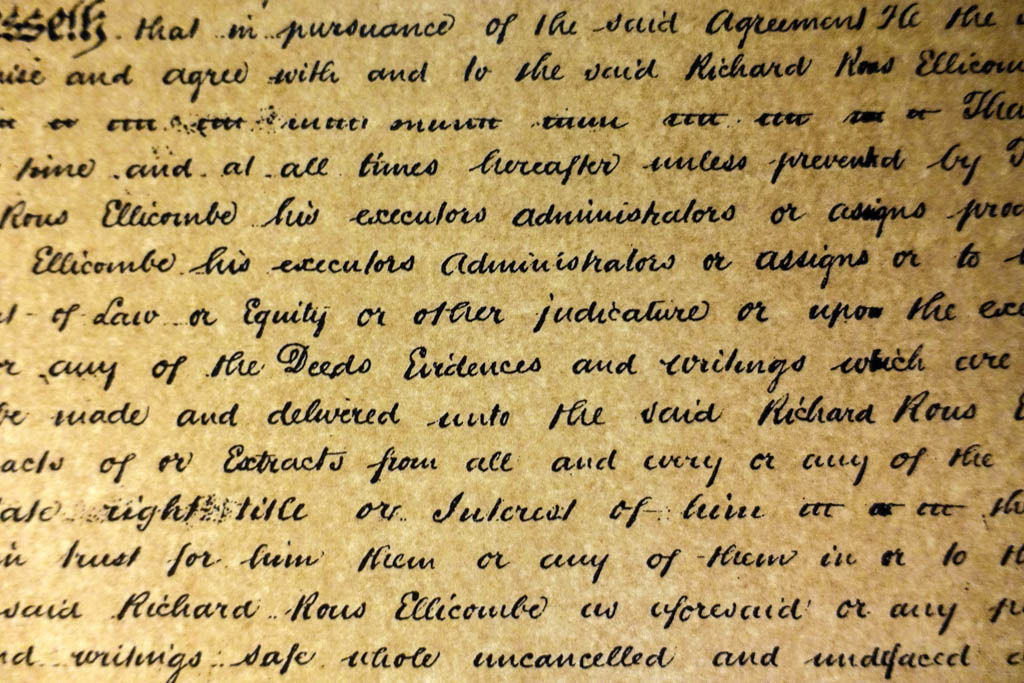 that in pursuance of the said Agreement He the
and agree with and to the said Richard Rous Ellicom
time and at all times hereafter unless prevented by
Rous Ellicombe his executors administrators or assigns
Ellicombe his executors Administrators or assigns or to
of Law or Equity or other judicature or upon the
any of the Deeds Evidences and writings which are
be made and delivered unto the said Richard Rous
of or Extracts from all and every or any of the
right title or Interest of him
in trust for him them or any of them in or to
said Richard Rous Ellicombe as aforesaid or any
writings safe whole uncancelled and undefaced